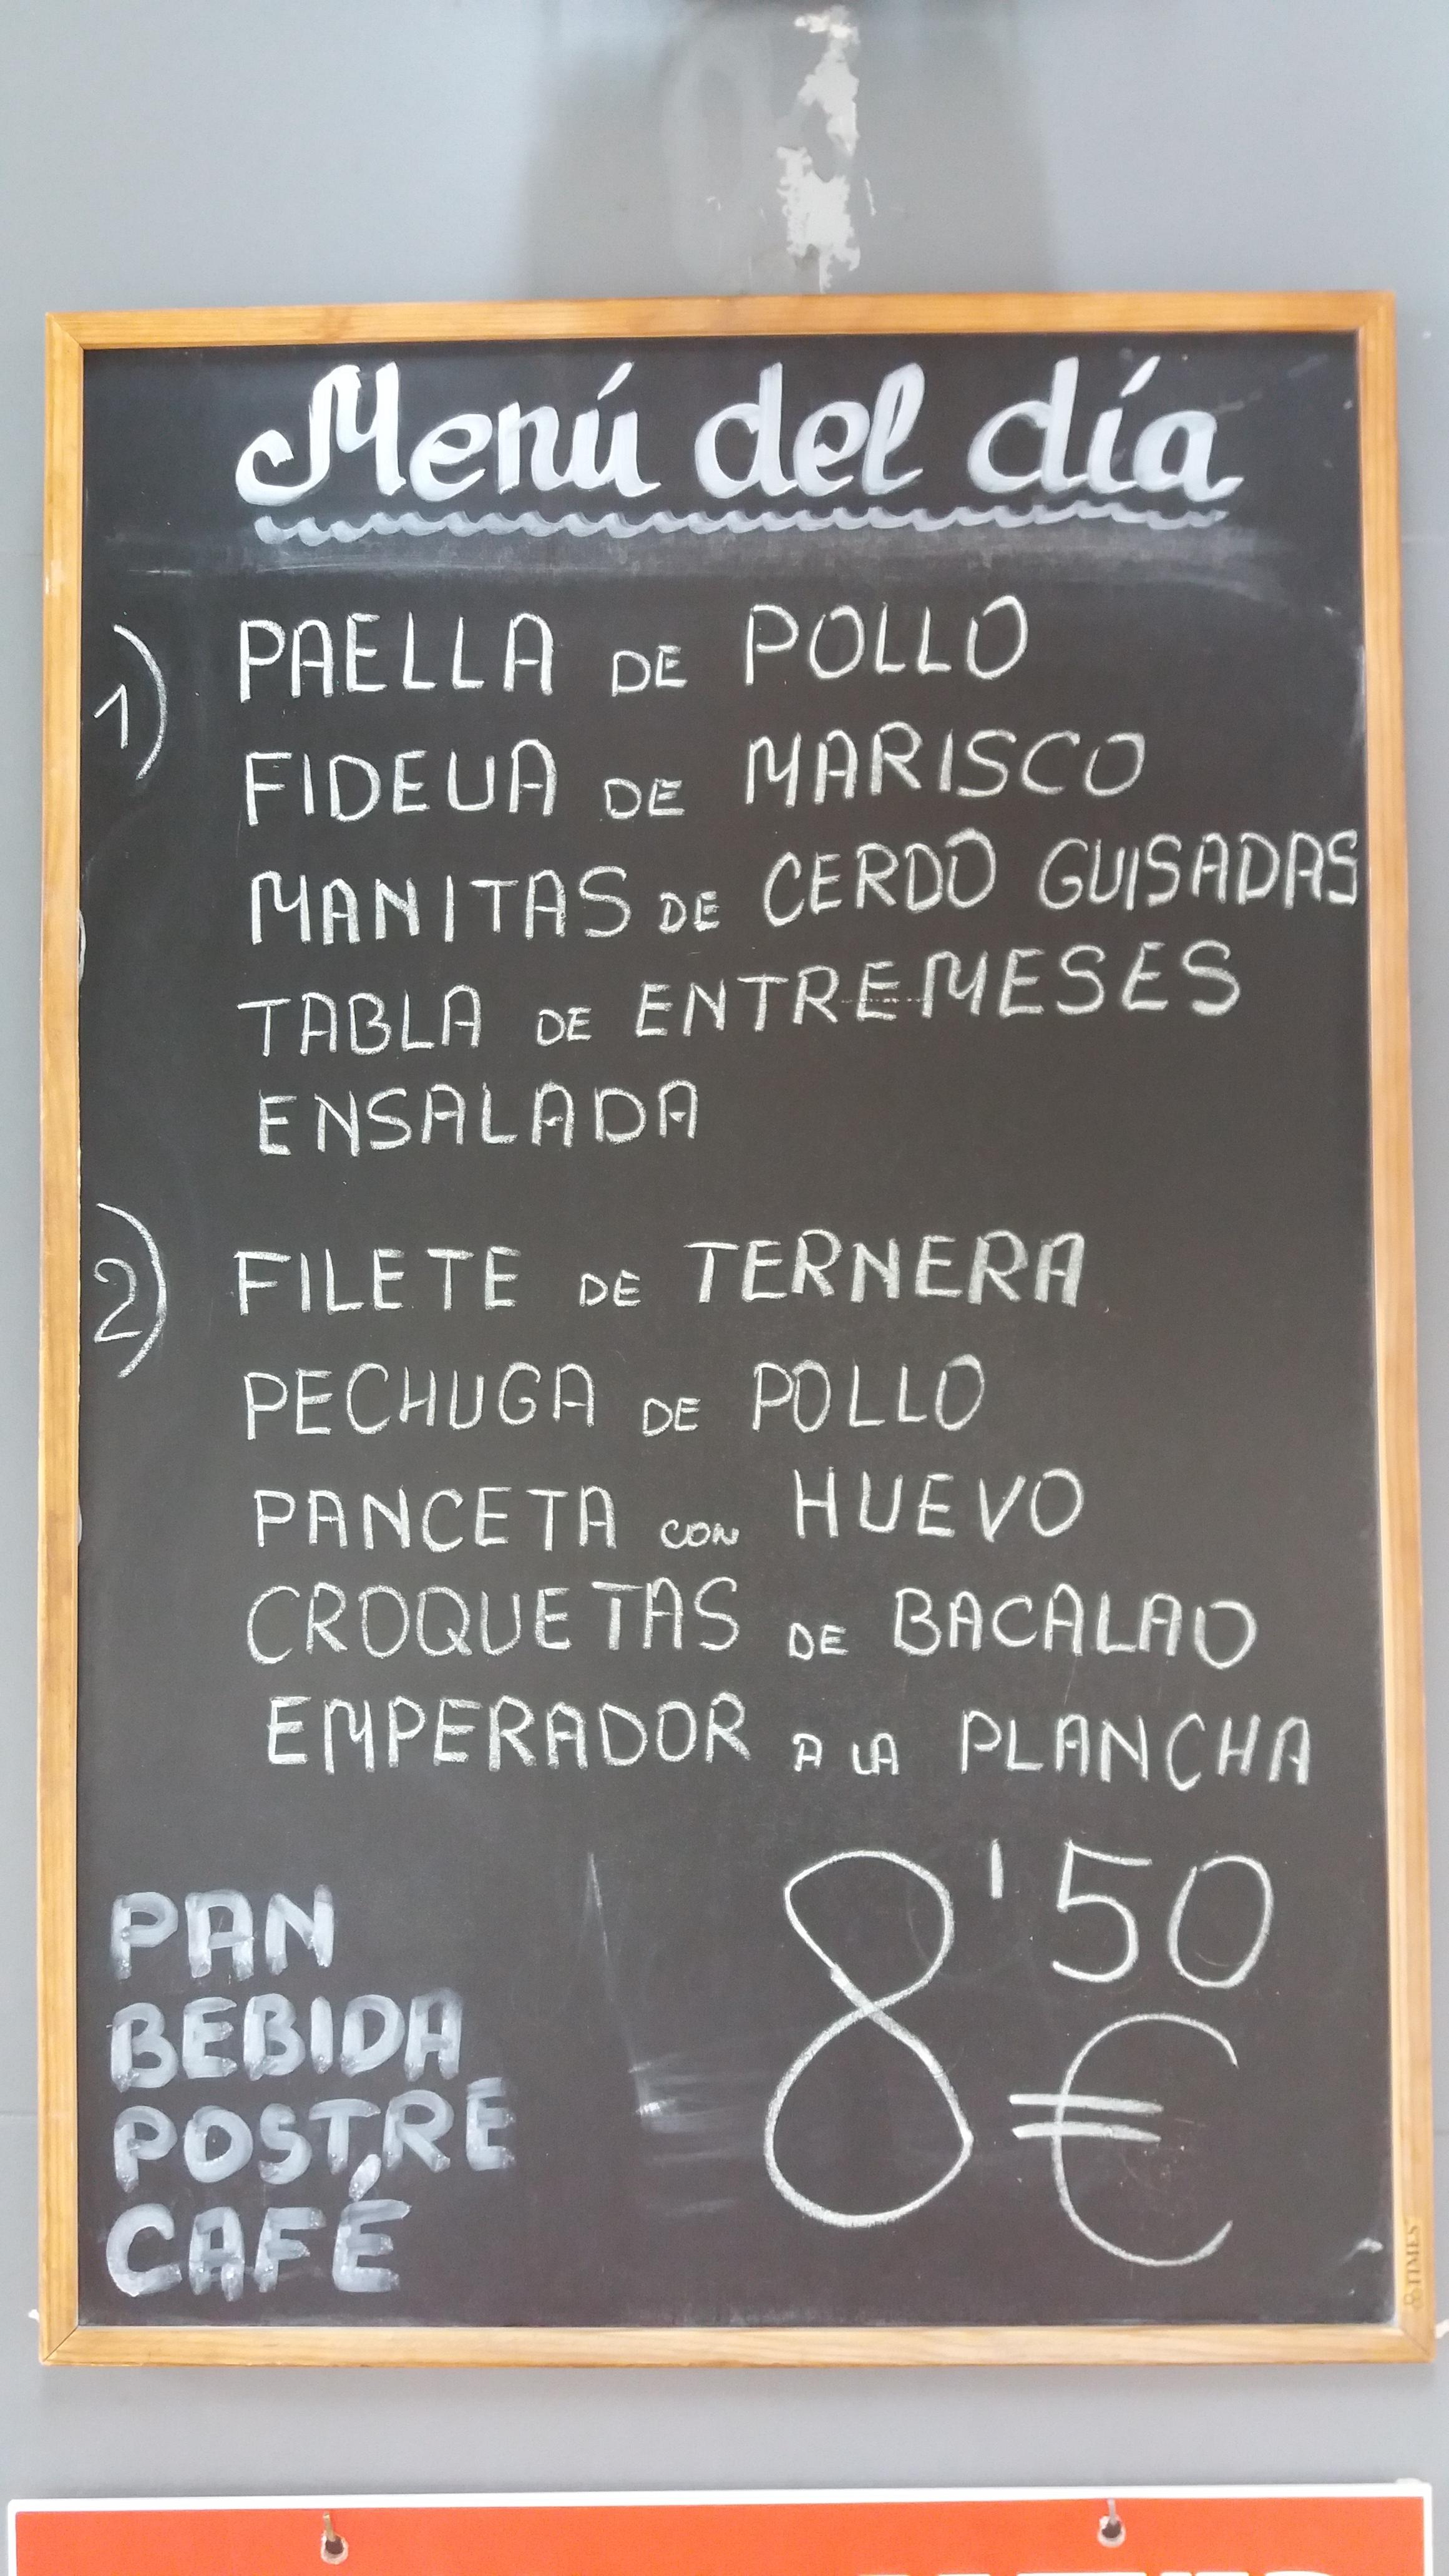 Menú del día
1) PAELLA DE POLLO
FIDEUA DE MARISCO
MANITAS DE CERDO GUISADAS
TABLA DE ENTREMESES
ENSALADA
2) FILETE DE TERNERA
PECHUGA DE POLLO
PANCETA CON HUEVO
CROQUETAS DE BACALAO
EMPERADOR A LA PLANCHA
8'50
€
PAN
BEBIDA
POSTRE
CAFÉ
TIMES